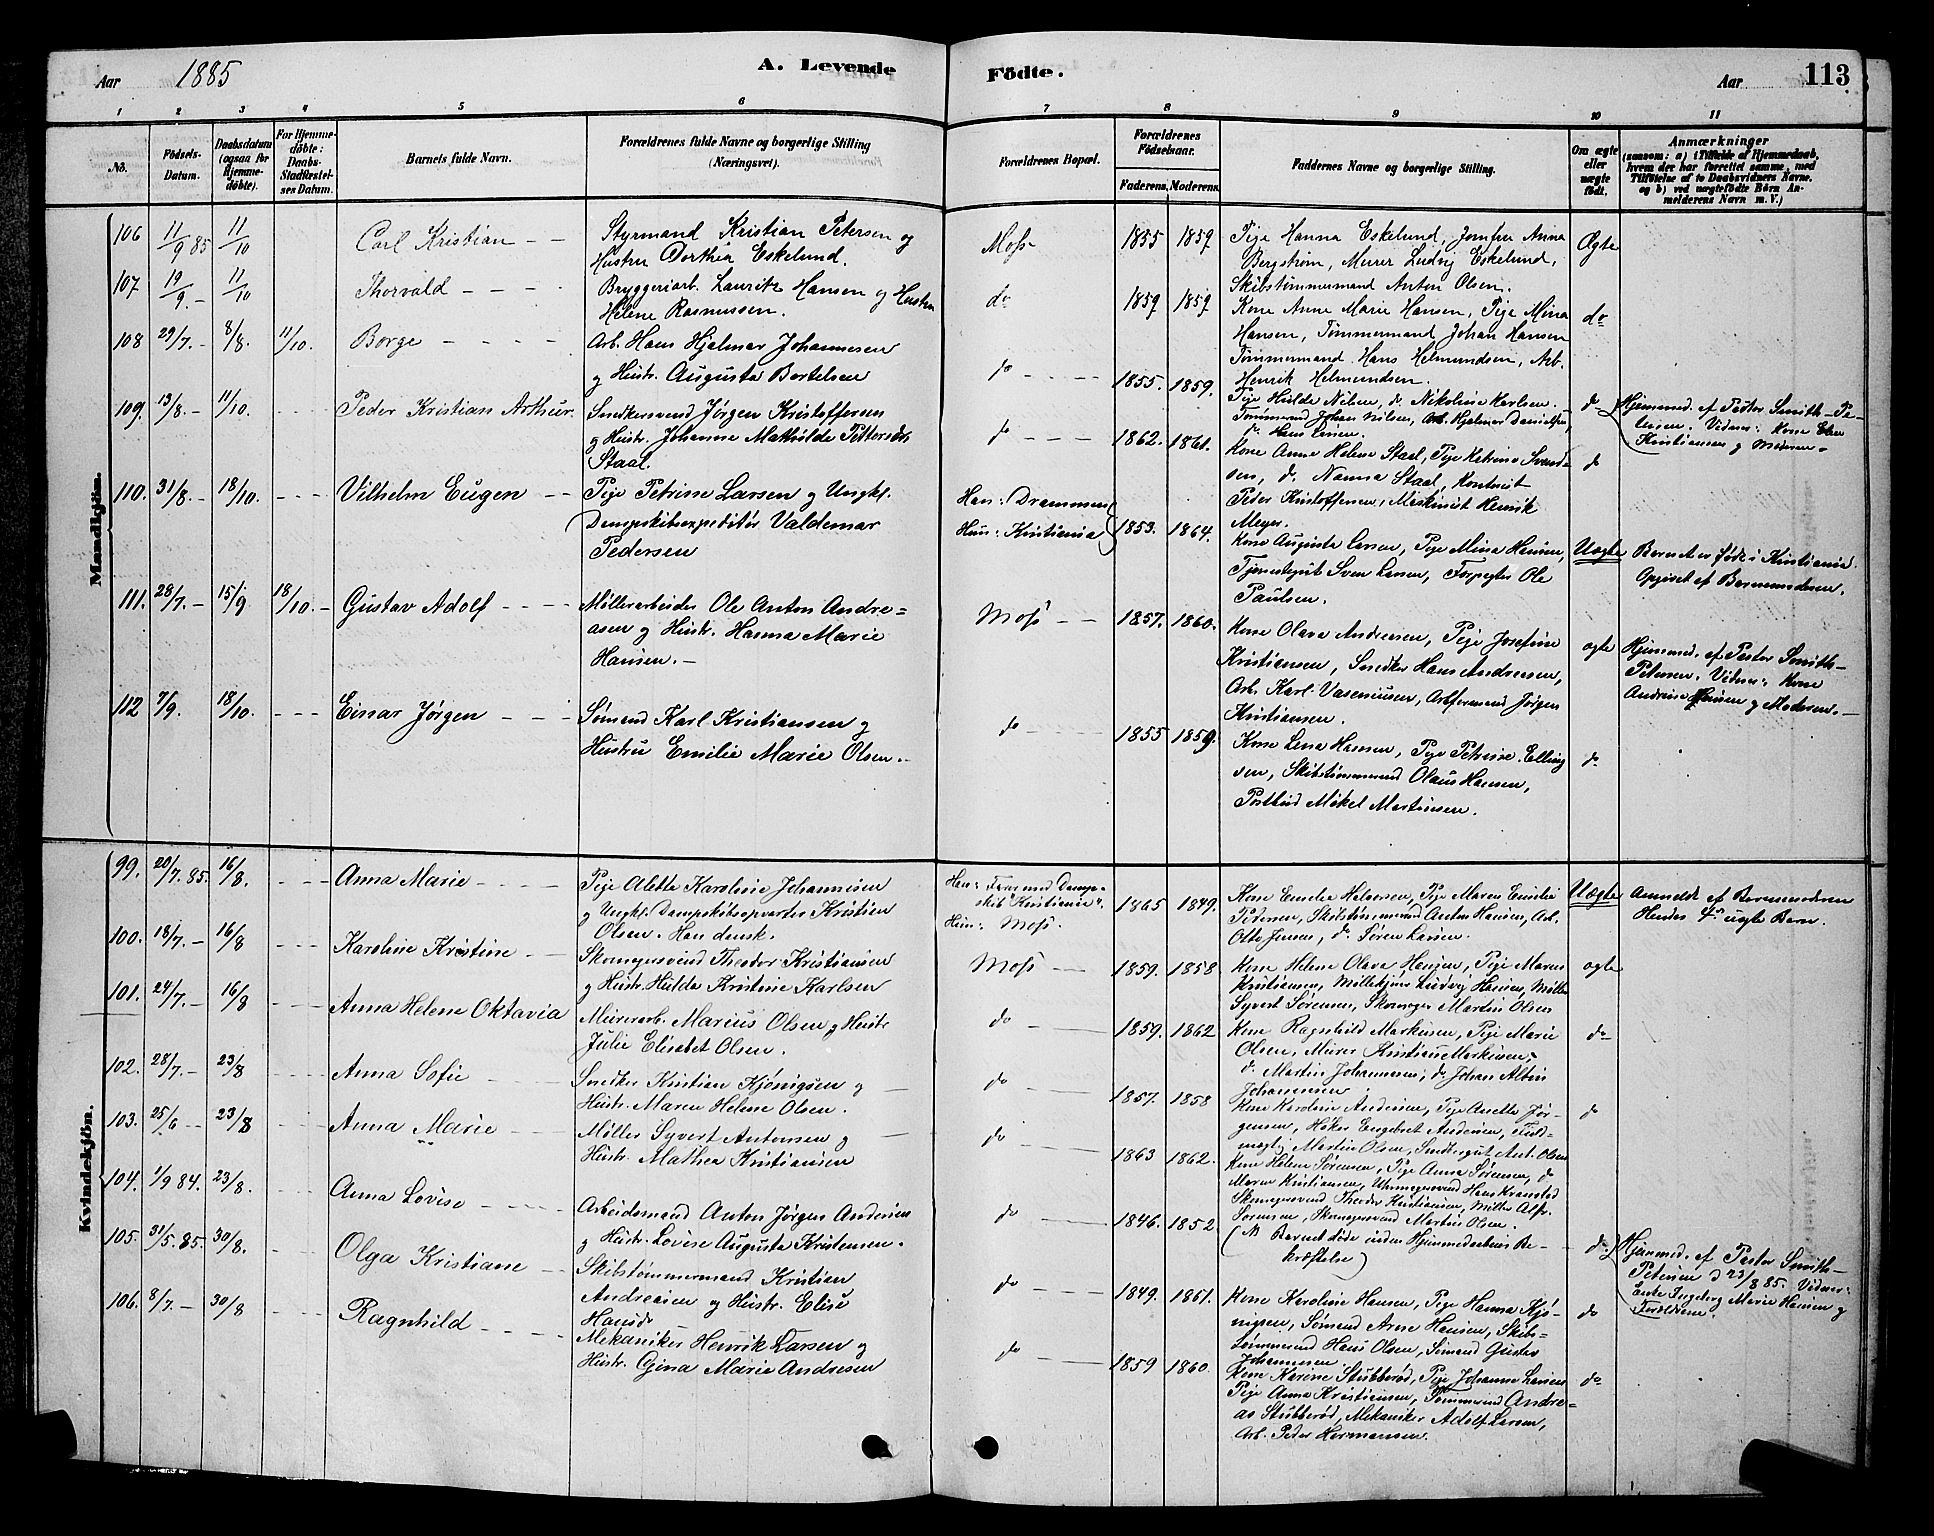 Aar 1885
A. Levende
Födte.
Aar
113
1 2 3 4 5 6 7 8 9 10 11
No.
Födsels-Datum.
Daabsdatum (ogsaa for Hjemme-döbte).
For Hjemme-döbte: Daabs-Stadfæstel-ses Datum.
Barnets fulde Navn.
Forældrenes fulde Navne og borgerlige Stilling (Næringsvei).
Forældrenes Bopæl.
Forældrenes Födselsaar.
Faderens. Moderens.
Faddernes Navne og borgerlige Stilling.
Om ægte eller uægte födt.
Anmærkninger
(saasom: a) i Tilfælde af Hjemmedaab, hvem der har forrettet samme, med Tilföielse af to Daabsvidners Navne, og b) ved uægtefödte Börn An-melderens Navn m. V.)
Mandkjön.
106 11/9 85 11/10 Carl Kristian - -
Styrmand Kristian Petersen og
Hustru Dorthea Eskelund.
Moss 1855 1859
Pige Hanna Eskelund, Jomfru Anna
Bergstrøm, Murer Ludvig Eskelund,
Skibstømmermand Anton Olsen.
Ægte
107 19/9 - 11/10 Thorvald - - -
Bryggeriarb. Lauritz Hansen og Hustru
Helene Rasmussen.
do 1859 1859
Kone Anne Marie Hansen, Pige Mina
Hansen, Tømmermand Johan Hansen
Tømmermand Hans Helmundsen, Arb.
Henrik Helmundsen.
do
108 29/7. - 8/8. 11/10. Borge - - - -
Arb. Hans Hjalmar Johannesen
og Hustr. Augusta Bertelsen
do - - - 1855. 1859.
Pige Hulda Nilsen, do Nikoline Karlsen.
Tømmermd Johan Nilsen, Arb. Hjelmar Danielsen,
do Hans
do
Hjemmed. af Pastor Smith-Pe-
tersen. Vidner: Kone
Kristiansen og Moderen.
109. 13/8. - 11/10. Peder Kristian Arthur.
Snedkersvend Jørgen Kristoffersen
og Hustr. Johanne Mathilde Pettersdtr
Staal.
do - - - 1862. 1861.
Kone Anne Helene Staal, Pige Katrine Svend-
sen, do. Nanna Staal, Kontorist
Peder Kristoffersen, Maskinist Henrik
Meyer.
do
110. 31/8. - 18/10. - - - Vilhelm Eugen - -
Pige Petrine Larsen og Ungkl.
Dampskibsexpeditør Valdemar
Pedersen
Han: Drammen
Hun: Kristiania
1853. 1864.
Kone Augusta Larsen, Pige Mina Hansen,
Tjenestegut Sven Larsen, Forpagter Ole
Paulsen.
Uægte
Barnet er født i Kristiania.
Opgivet af Barnemoderen.
111. 28/7. - 15/9 18/10. - Gustav Adolf - - - -
Møllerarbeider Ole Anton Andre-
asen og Hustr. Hanna Marie
Hansen. -
Moss - - 1857. 1860.
Kone Olava Andreasen, Pige Josefine
Kristiansen, Snedker Hans Andreasen,
Arb. Karl Vasenusen, Arbformand Jørgen
Kristiansen.
ægte
Hjemmed. af Pastor Smith-
Petersen. Vidner: Kone
Andrine Hansen og Moderen. -
112 7/9. 18/10. - - - Einar Jørgen - - -
Sømand Karl Kristiansen og
Hustru Emilie Marie Olsen. -
do - - - - 1855 1859.
Kone Lena Hansen, Pige Petrine Elling
sen, Skibstømmermd Olaus Hansen,
Postbud Mikel Martinsen.
do
Kvindekjön.
99. 20/7. 85. 16/8. - - - Anna Marie - - - -
Pige Alette Karoline Johannesen
og Ungkl. Dampskibsopvarter Kristian
Olsen. Han dansk.
Han: Farer med Damp-
skib "Kristiania".
Hun: Moss.
1865 1849.
Kone Emelie Halvorsen, Pige Maren Emilie
Pedersen, Skibstømmermd Anton Hansen, Arb.
Otto Jensen, do. Søren Larsen.
Uægte
Anmeldt af Barnemoderen
Hendes 4de uægte Barn.
100. 18/7. - 16/8 Karoline Kristine -
Skomagersvend Theodor Kristiansen
og Hustr. Hulda Kristine Karlsen
Moss - - 1859. 1858
Kone Helene Olava Hansen, Pige Maren
Kristiansen, Møllekjører Ludvig Hansen, Møller
Syvert Sørensen, Skomager Martin Olsen
ægte
101. 24/7. - 16/8 Anna Helene Oktavia
Murerarb. Marius Olsen og Hustr.
Julie Elisabet Olsen.
do - - - 1859. 1862
Kone Ragnhild Markusen, Pige Marie
Olsen, Murer Kristian Markusen,
do. Martin Johannesen, do Johan Albin
Johannesen
do
102. 28/7. - 23/8 Anna Sofie -
Snedker Kristian Kjønigsen og
Hustr. Maren Helene Olsen.
do - - - 1857. 1858
Kone Karoline Andersen, Pige Anette Jør-
gensen, Høker Engebret Andersen, Fuld-
mægtig Martin Olsen, Snedkergut Ant. Olsen
do
103. 25/6 - - 23/8 Anna Marie - -
Møller Syvert Antonsen og
Hustr. Mathea Kristiansen
do - - - 1863 1862.
Kone Helene Sørensen, Pige Anna Sørensen, do
Maren Kristiansen, Uhrmagersvend Hans
Skomagersvend Theodor Kristiansen, Møller Alfr.
Sørensen, Skomagersvend Martin Olsen.
104. 1/9 84. 23/8. - - - Anna Lovise - - - -
Arbeidsmand Anton Jørgen Andersen
og Hustr. Lovise Augusta Kristensen.
do - - - 1846. 1852
(NB Barnet døde inden Hjemmedaabens Be-
kræftelse)
do.
Hjemmed. af Pastor Smith-
Petersen d 23/8 85. Vidner:
Enke Ingeborg Marie Hansen og
Forældrene.
105. 31/5. 85. 30/8. Olga Kristiane -
Skibstømmermand Kristian
Andreasen og Hustr. Elise
Hansdr
do - - - 1849. 1861.
Kone Karoline Hansen, Pige Hanna Kjø-
nigsen, Sømand Arne Hansen, Skibs-
tømmermd Hans Olsen, Sømand Gustav
Johannesen
do
106. 8/7. - 30/8 Ragnhild - - - -
Mekaniker Henrik Larsen og
Hustr. Gina Marie Andresen
do - - - 1859 1860.
Kone Karine Stubberød, Pige Johanne Larsen
Pige Anna Kristiansen, Tømmermd Andre-
as Stubberød, Mekaniker Adolf Larsen,
Arb. Peder Hermansen.
do